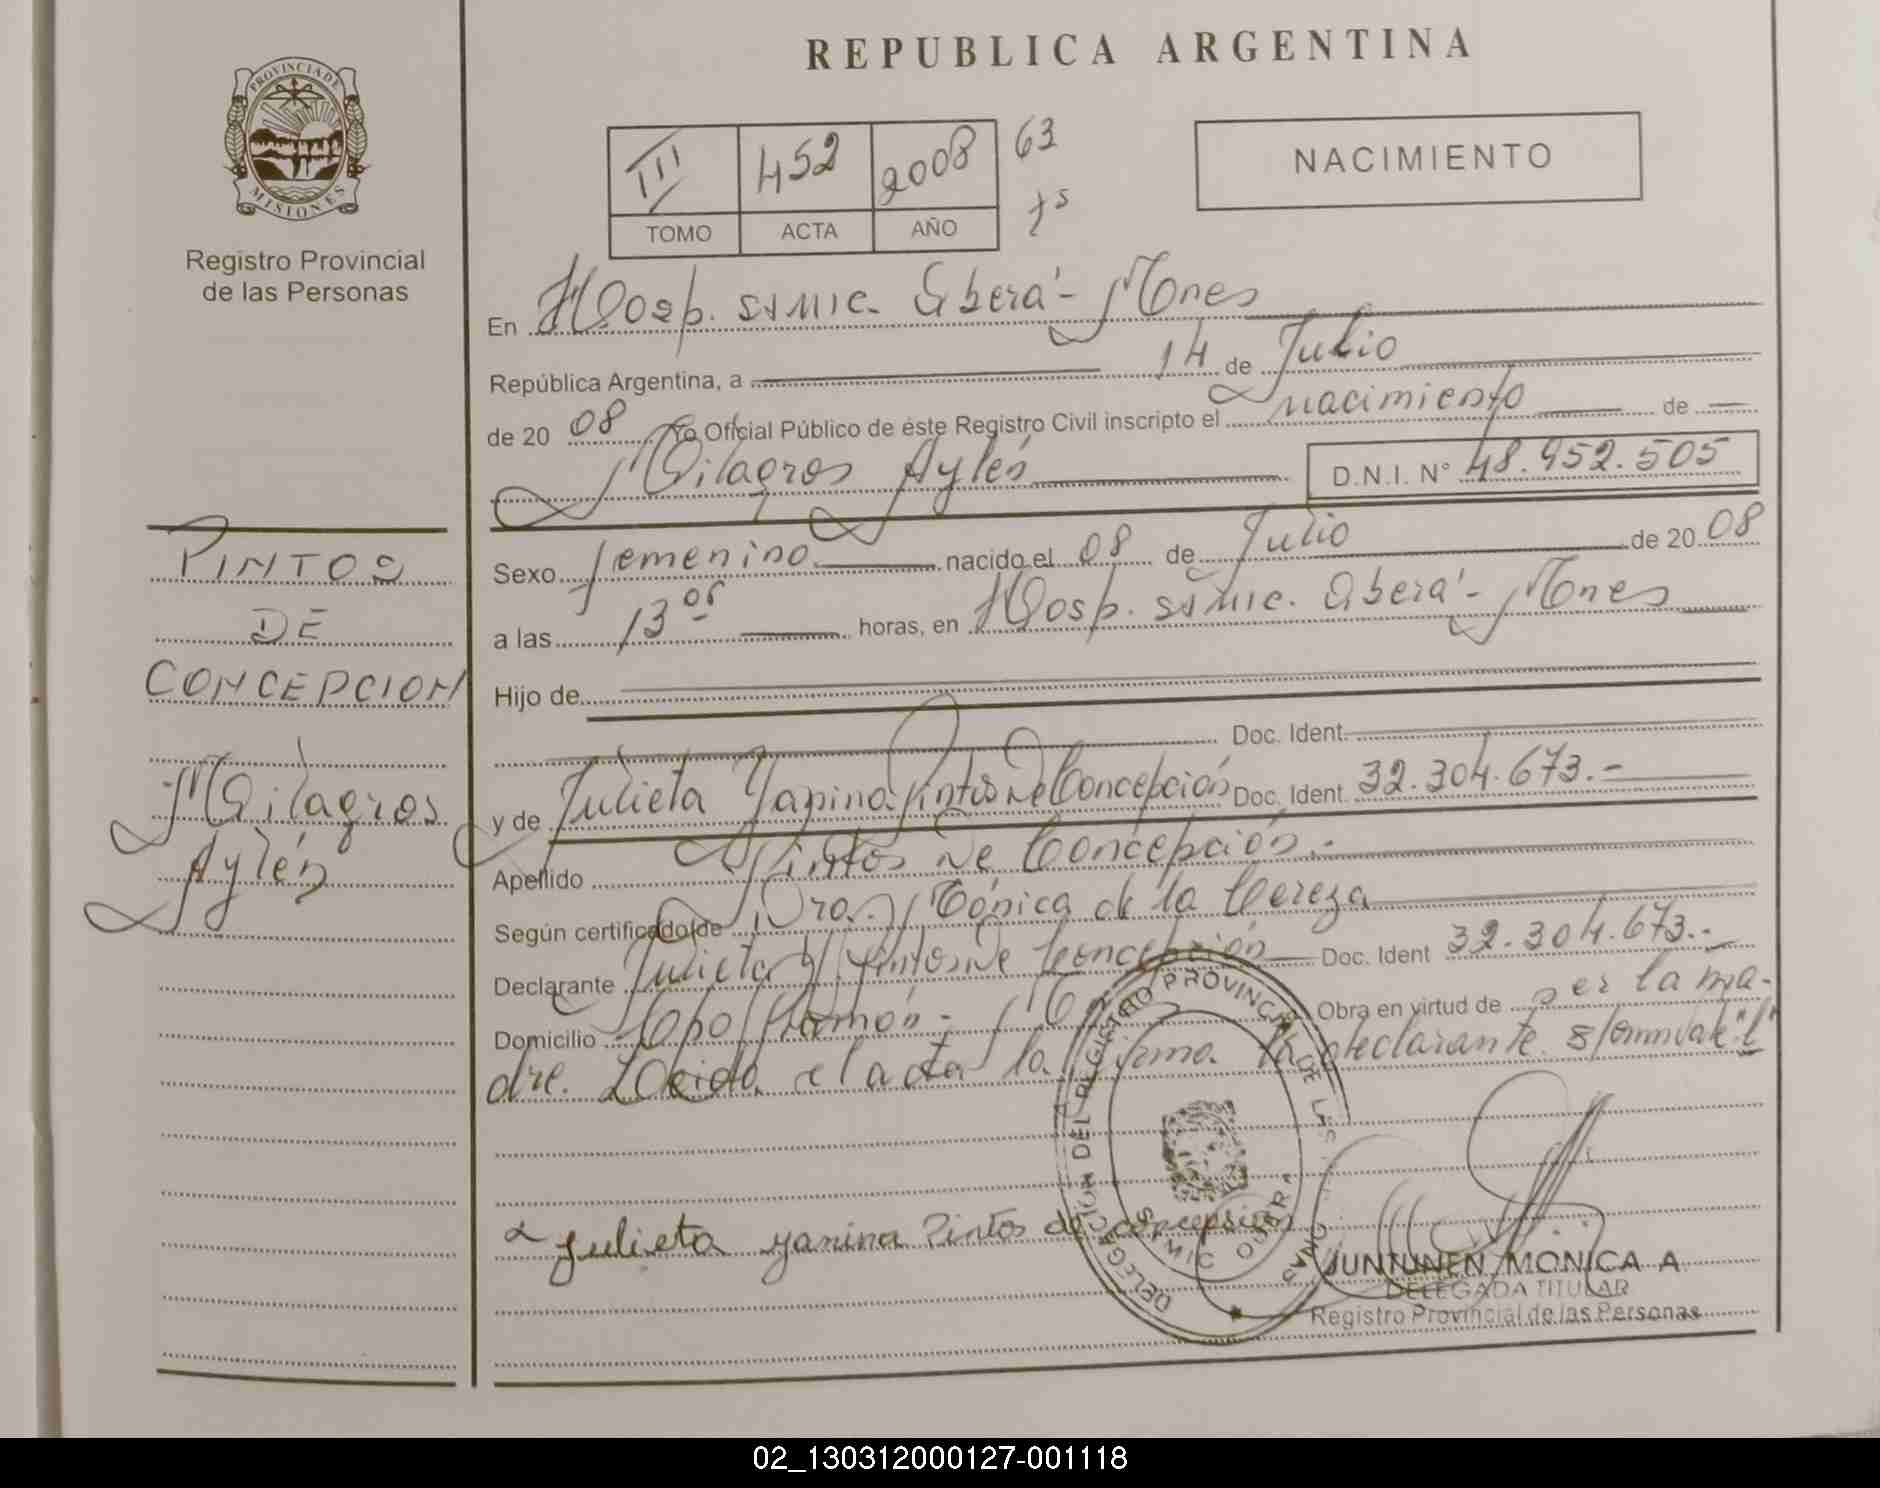 REPUBLICA ARGENTINA
PROVINCIA DE MISIONES
Registro Provincial
de las Personas
III 452 2008 63
TOMO ACTA AÑO
NACIMIENTO
En Hosp. SAMIC. Oberá - Mnes
República Argentina, a 14 de Julio
de 20 08 Yo Oficial Público de éste Registro Civil inscripto el nacimiento de
Milagros Aylén D.N.I. N° 48.952.505
PINTOS
DE
CONCEPCION
Milagros
Aylén
Sexo femenino nacido el 08 de Julio de 20 08
a las 13 05 horas, en Hosp. SAMIC. Oberá - Mnes
Hijo de
Doc. Ident.
y de Julieta Yanina Pintos De Concepción Doc. Ident. 32.304.673.-
Apellido Pintos De Concepción.-
Según certificado de Dra. Mónica de la Cereza
Declarante Julieta Y. Pintos De Concepción Doc. Ident 32.304.673.-
Domicilio Cpo Ramón - Obra en virtud de ser la ma-
dre. Leída el acta la firma la declarante.
Julieta yanina Pintos de concepcion
DELEGACION DEL REGISTRO PROVINCIAL DE LAS PERSONAS
SAMIC OBERA
JUNTUNEN, MONICA A
DELEGADA TITULAR
Registro Provincial de las Personas
02_130312000127-001118